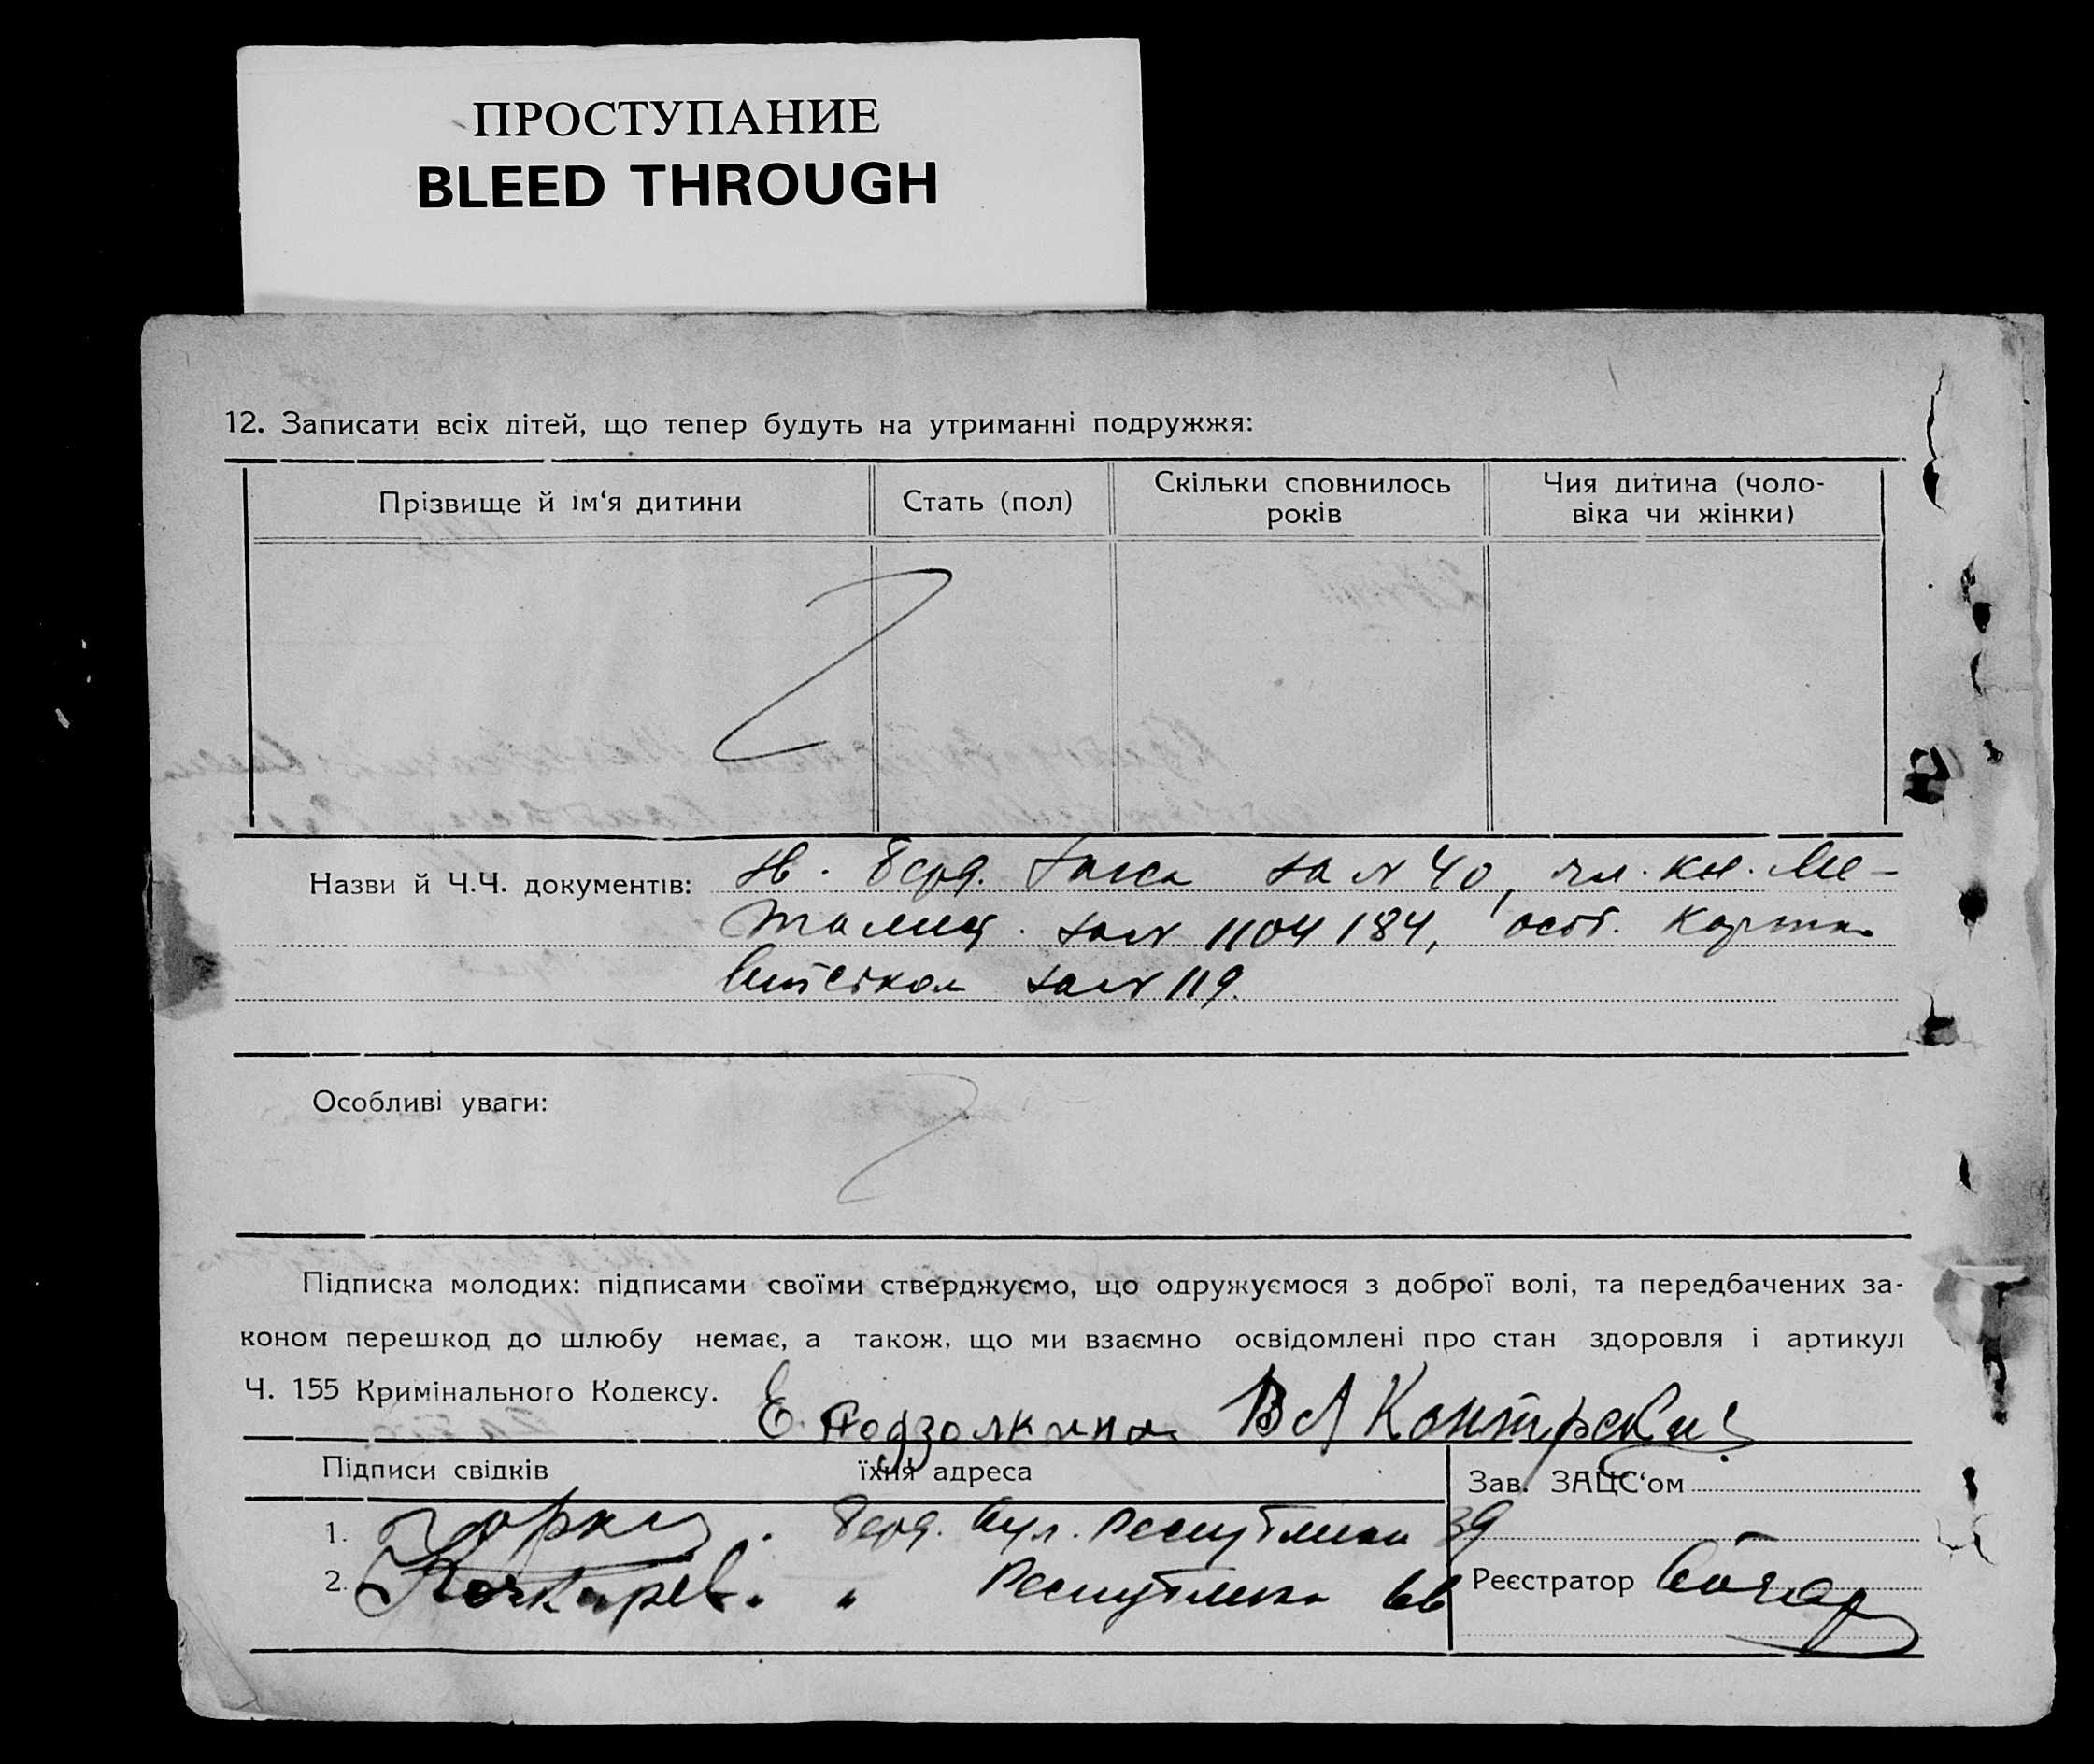 ПРОСТУПАНИЕ
BLEED THROUGH
12. Записати всіх дітей, що тепер будуть на утриманні подружжя:
Прізвище й ім‘я дитини
Стать (пол)
Скільки сповнилось
років
Чия дитина (чоло-
віка чи жінки)
Назви й Ч.Ч. документів: Берд. за № 40, чл. кн. Ме-
талист. за № 1104184, особ. картка
військом за № 119.
Особливі уваги:
Підписка молодих: підписами своїми стверджуємо, що одружуємося з доброї волі, та передбачених за-
коном перешкод до шлюбу немає, а також, що ми взаємно освідомлені про стан здоровля і артикул
Ч. 155 Кримінального Кодексу.
Е Подзолкина
Підписи свідків
їхня адреса
Зав. ЗАЦС‘ом
1. Берд. вул. Республики 39
2. " Республики 66
Реєстратор